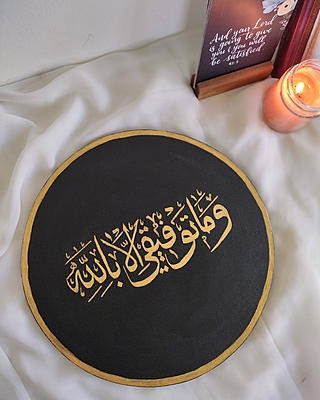 And your Lord
is going to give
you & you will
be satisfied
وَمَا تَوْفِيقِي إِلَّا بِاللَّهِ